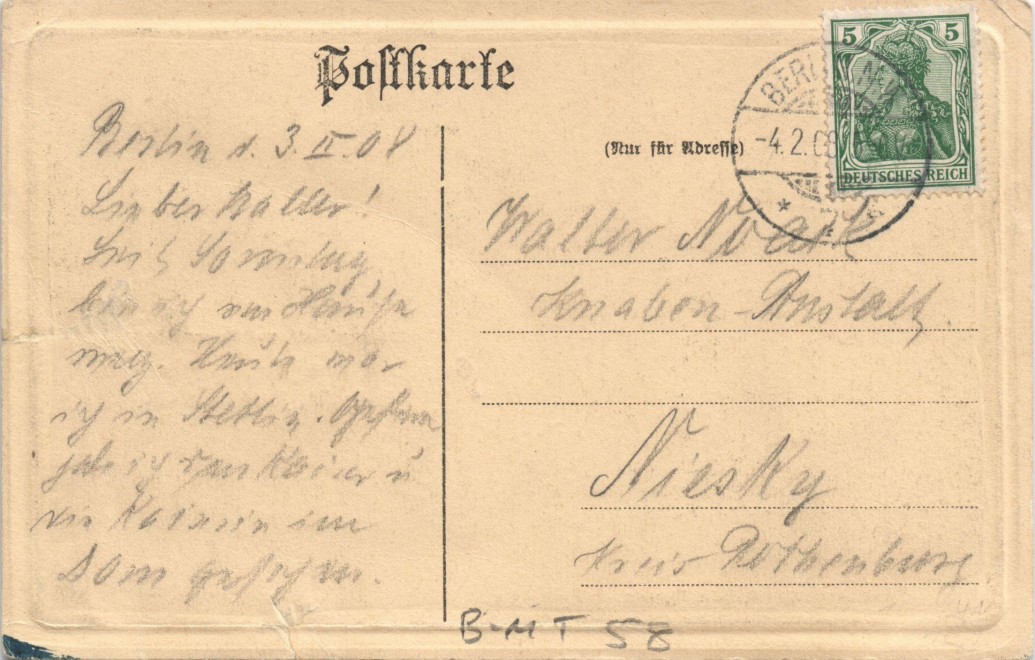 Postkarte
(Nur für Adresse)
5 5
DEUTSCHES REICH
BERLIN
-4.2.08
Berlin d. 3.II.08
Lieber Walter!
Seit Sonntag
bin ich von Hause
weg. Heute war
ich in Stettin. Gestern
sah ich den Kaiser u
die Kaiserin im
Dom gehen.
Walter Noack
Knaben-Anstalt
Niesky
Kreis Rothenburg
B-MT 58